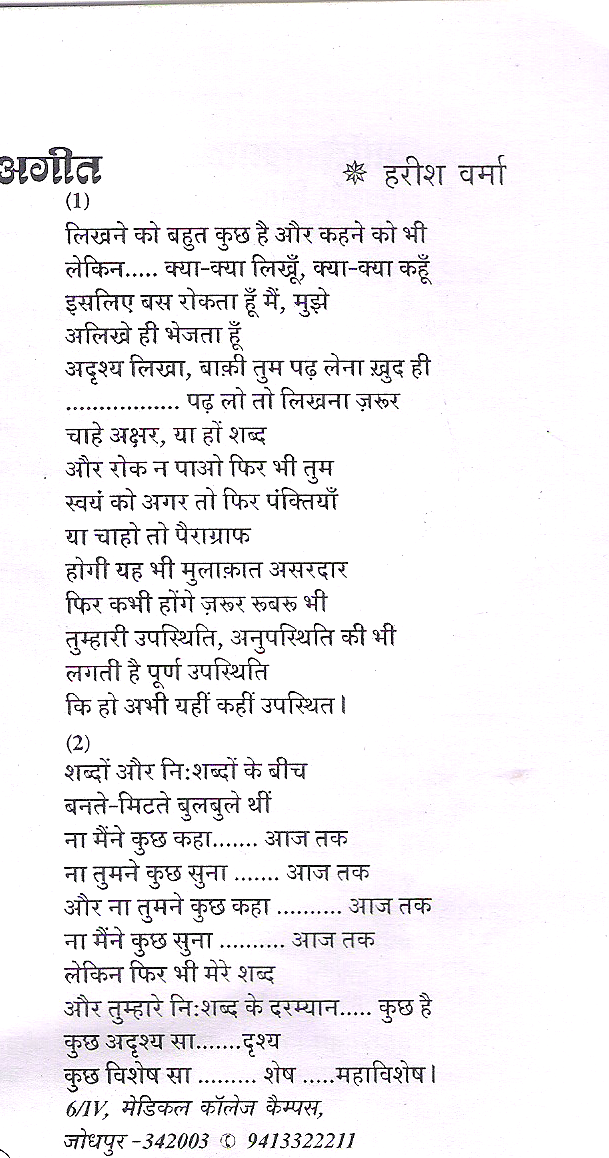 अगीत
✵ हरीश वर्मा
(1)
लिखने को बहुत कुछ है और कहने को भी
लेकिन..... क्या-क्या लिखूँ, क्या-क्या कहूँ
इसलिए बस रोकता हूँ मैं, मुझे
अलिखे ही भेजता हूँ
अदृश्य लिखा, बाक़ी तुम पढ़ लेना ख़ुद ही
................. पढ़ लो तो लिखना ज़रूर
चाहे अक्षर, या हों शब्द
और रोक न पाओ फिर भी तुम
स्वयं को अगर तो फिर पंक्तियाँ
या चाहो तो पैराग्राफ
होगी यह भी मुलाक़ात असरदार
फिर कभी होंगे ज़रूर रूबरू भी
तुम्हारी उपस्थिति, अनुपस्थिति की भी
लगती है पूर्ण उपस्थिति
कि हो अभी यहीं कहीं उपस्थित।
(2)
शब्दों और नि:शब्दों के बीच
बनते-मिटते बुलबुले थीं
ना मैंने कुछ कहा....... आज तक
ना तुमने कुछ सुना ....... आज तक
और ना तुमने कुछ कहा .......... आज तक
ना मैंने कुछ सुना .......... आज तक
लेकिन फिर भी मेरे शब्द
और तुम्हारे नि:शब्द के दरम्यान..... कुछ है
कुछ अदृश्य सा.......दृश्य
कुछ विशेष सा ......... शेष .....महाविशेष।
6/IV, मेडिकल कॉलेज कैम्पस,
जोधपुर -342003 ✆ 9413322211